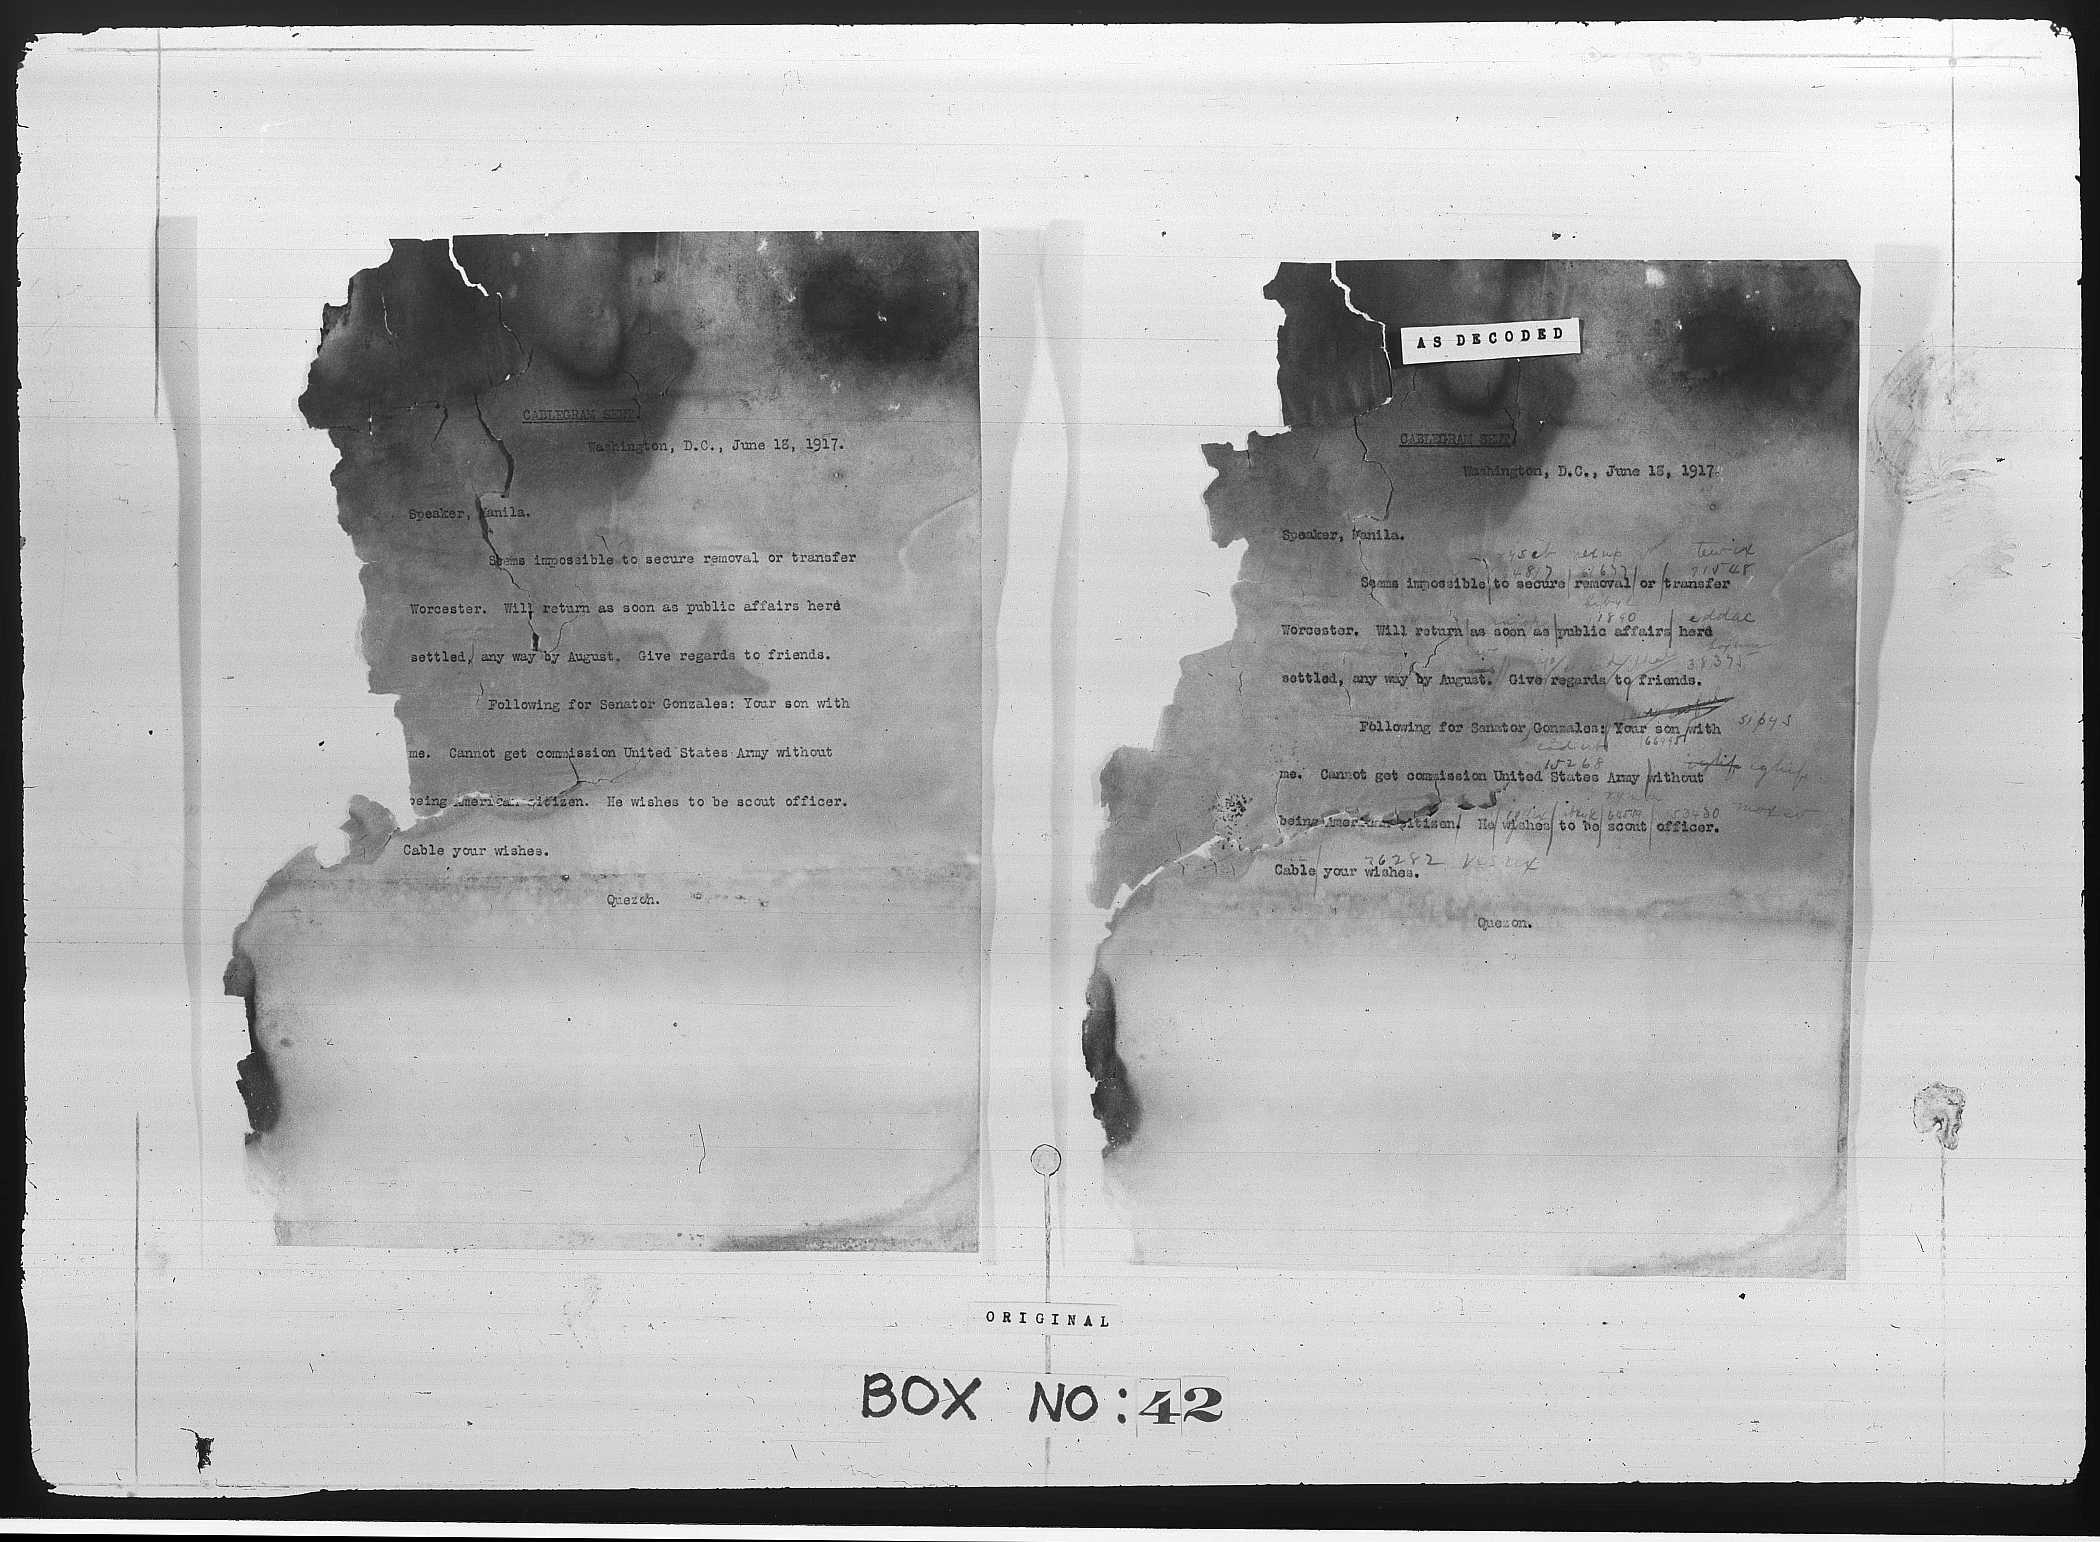 CABLEGRAM SENT.
Washington, D.C., June 18, 1917.
Speaker, Manila.
Seems impossible to secure removal or transfer
Worcester. Will return as soon as public affairs herd
settled, any way by August. Give regards to friends.
Following for Senator Gonzales: Your son with
me. Cannot get commission United States Army without
being American citizen. He wishes to be scout officer.
Cable your wishes.
Quezon.
AS DECODED
CABLEGRAM SENT.
Washington, D.C., June 18, 1917.
Speaker, Manila.
tewix
71548
Seems impossible to secure removal or transfer
1840 eddac
Worcester. Will return as soon as public affairs herd
38375
settled, any way by August. Give regards to friends.
Following for Senator Gonzales: Your son with
15268
me. Cannot get commission United States Army without
being American citizen. He wishes to be scout officer.
36282
Cable your wishes.
Quezon.
ORIGINAL
BOX NO: 42